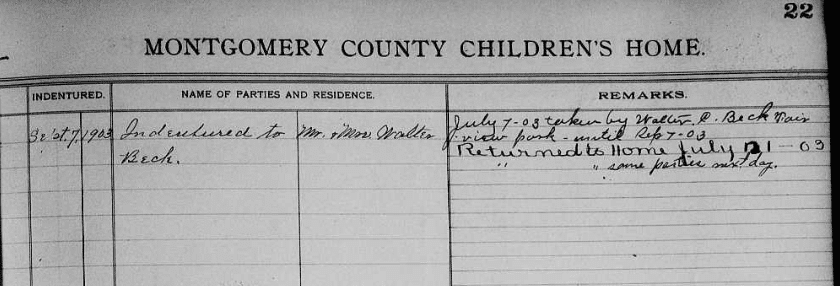 22
MONTGOMERY COUNTY CHILDREN'S HOME.
INDENTURED. NAME OF PARTIES AND RESIDENCE. REMARKS.
July 7-03 taken by Walter P. Beck Fair
view park - until Sep 7-03
Sept. 7, 1903 Indentured to Mr. & Mrs. Walter
Beck.
Returned to Home July 21-03
" " same parties next day.